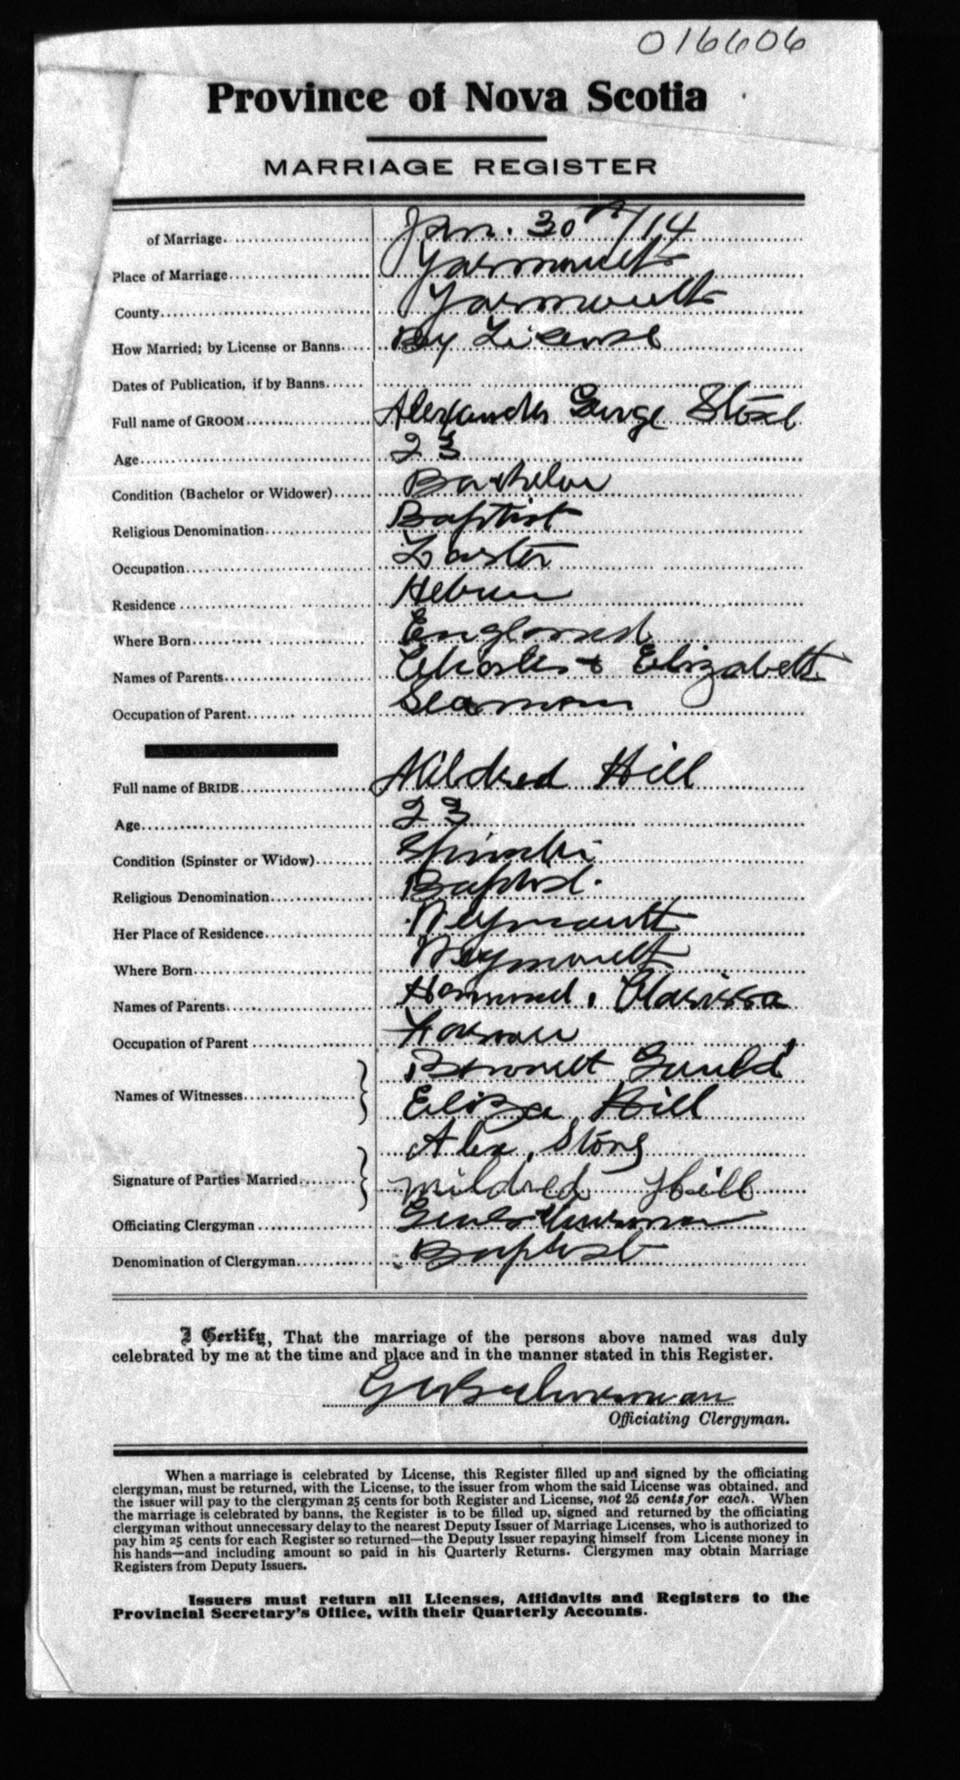 016606
Province of Nova Scotia
MARRIAGE REGISTER
of Marriage. Jan. 30th/14
Place of Marriage Yarmouth
County Yarmouth
How Married; by License or Banns By License
Dates of Publication, if by Banns
Full name of GROOM Alexander George
Age 23
Condition (Bachelor or Widower) Bachelor
Religious Denomination Baptist
Occupation
Residence Hebron
Where Born England
Names of Parents Charles + Elizabeth
Occupation of Parent Seaman
Full name of BRIDE Mildred Hill
Age 23
Condition (Spinster or Widow) Spinster
Religious Denomination Baptist.
Her Place of Residence Weymouth
Where Born Weymouth
Names of Parents
Occupation of Parent Farmer
Names of Witnesses
Eliza Hill
Alex,
Signature of Parties Married Mildred Hill
Officiating Clergyman
Denomination of Clergyman Baptist
I Certify, That the marriage of the persons above named was duly
celebrated by me at the time and place and in the manner stated in this Register.
Officiating Clergyman.
When a marriage is celebrated by License, this Register filled up and signed by the officiating
clergyman, must be returned, with the License, to the issuer from whom the said License was obtained, and
the issuer will pay to the clergyman 25 cents for both Register and License, not 25 cents for each. When
the marriage is celebrated by banns, the Register is to be filled up, signed and returned by the officiating
clergyman without unnecessary delay to the nearest Deputy Issuer of Marriage Licenses, who is authorized to
pay him 25 cents for each Register so returned—the Deputy Issuer repaying himself from License money in
his hands—and including amount so paid in his Quarterly Returns. Clergymen may obtain Marriage
Registers from Deputy Issuers.
Issuers must return all Licenses, Affidavits and Registers to the
Provincial Secretary's Office, with their Quarterly Accounts.